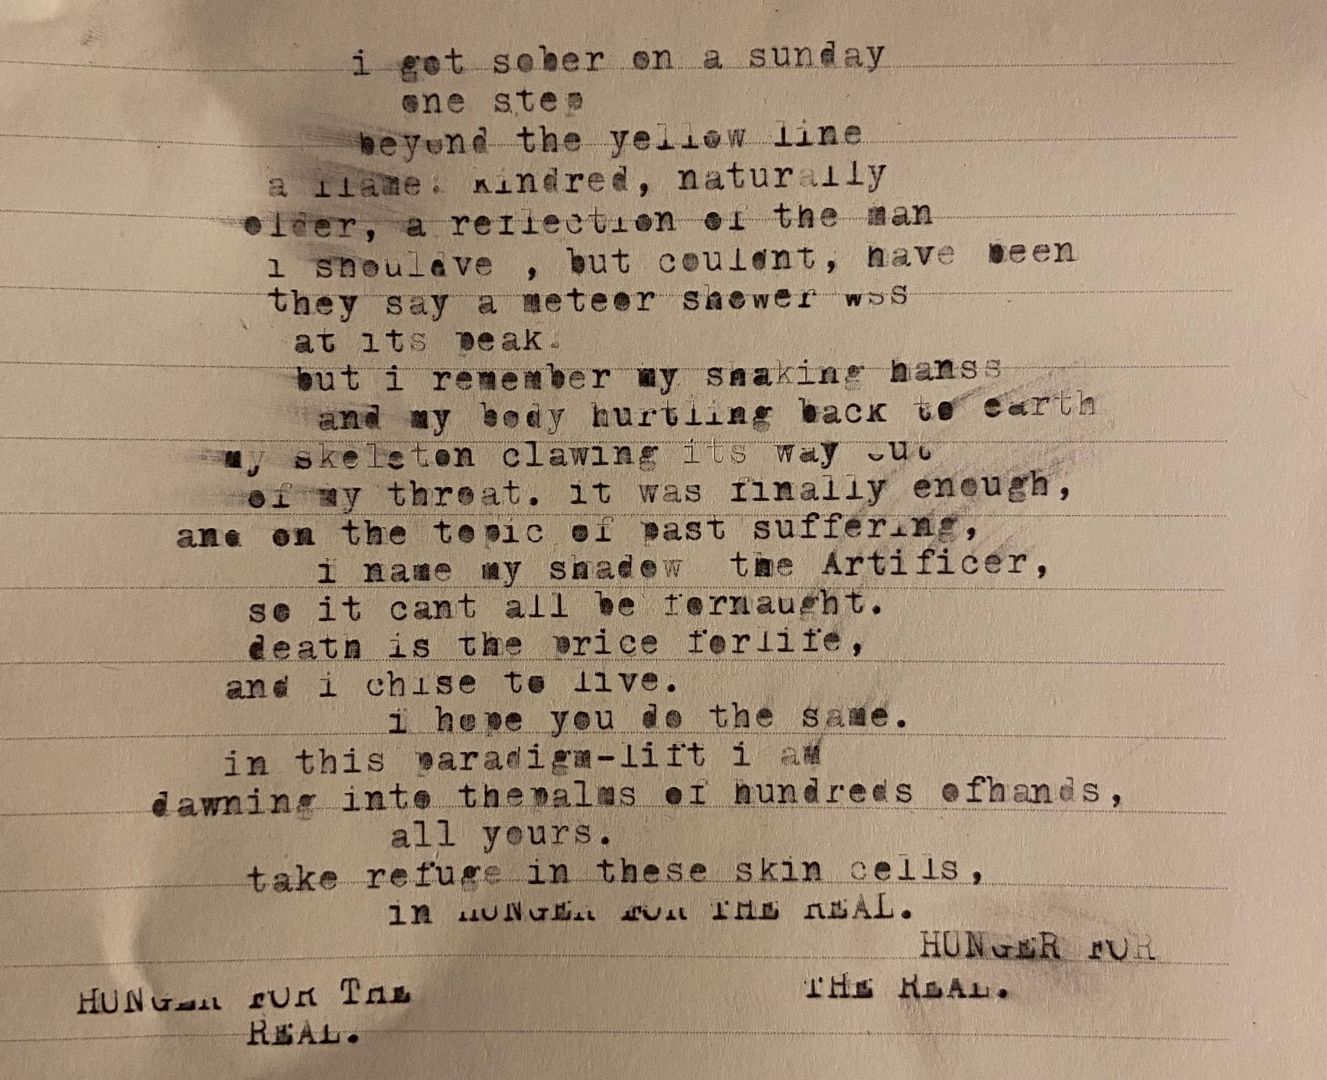 i got sober on a sunday
one step
beyond the yellow line
a flame. kindred, naturally
older, a reflection of the man
i shouldve , but couldnt, have been
they say a meteor shower was
at its peak.
but i remember my shaking hanss
and my body hurtling back to earth
my skeleton clawing its way out
of my throat. it was finally enough,
and on the topic of past suffering,
i name my shadow the Artificer,
so it cant all be fornaught.
death is the price forlife,
and i chise to live.
i hope you do the same.
in this paradigm-lift i am
dawning into thepalms of hundreds ofhands,
all yours.
take refuge in these skin cells,
in HUNGER FOR THE REAL.
HUNGER FOR
THE REAL.
HUNGER FOR THE
REAL.